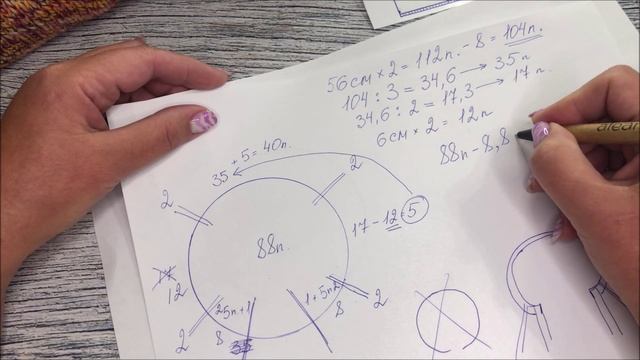 56см × 2 = 112п. - 8 = 104п.
104 : 3 = 34,6 → 35п
34,6 : 2 = 17,3 → 17п.
6см × 2 = 12п
88п - 8,8
35 + 5 = 40п.
2
2
17 - 12 = 5
88п.
12
25п+1
1+5п
2
2
8
8
35